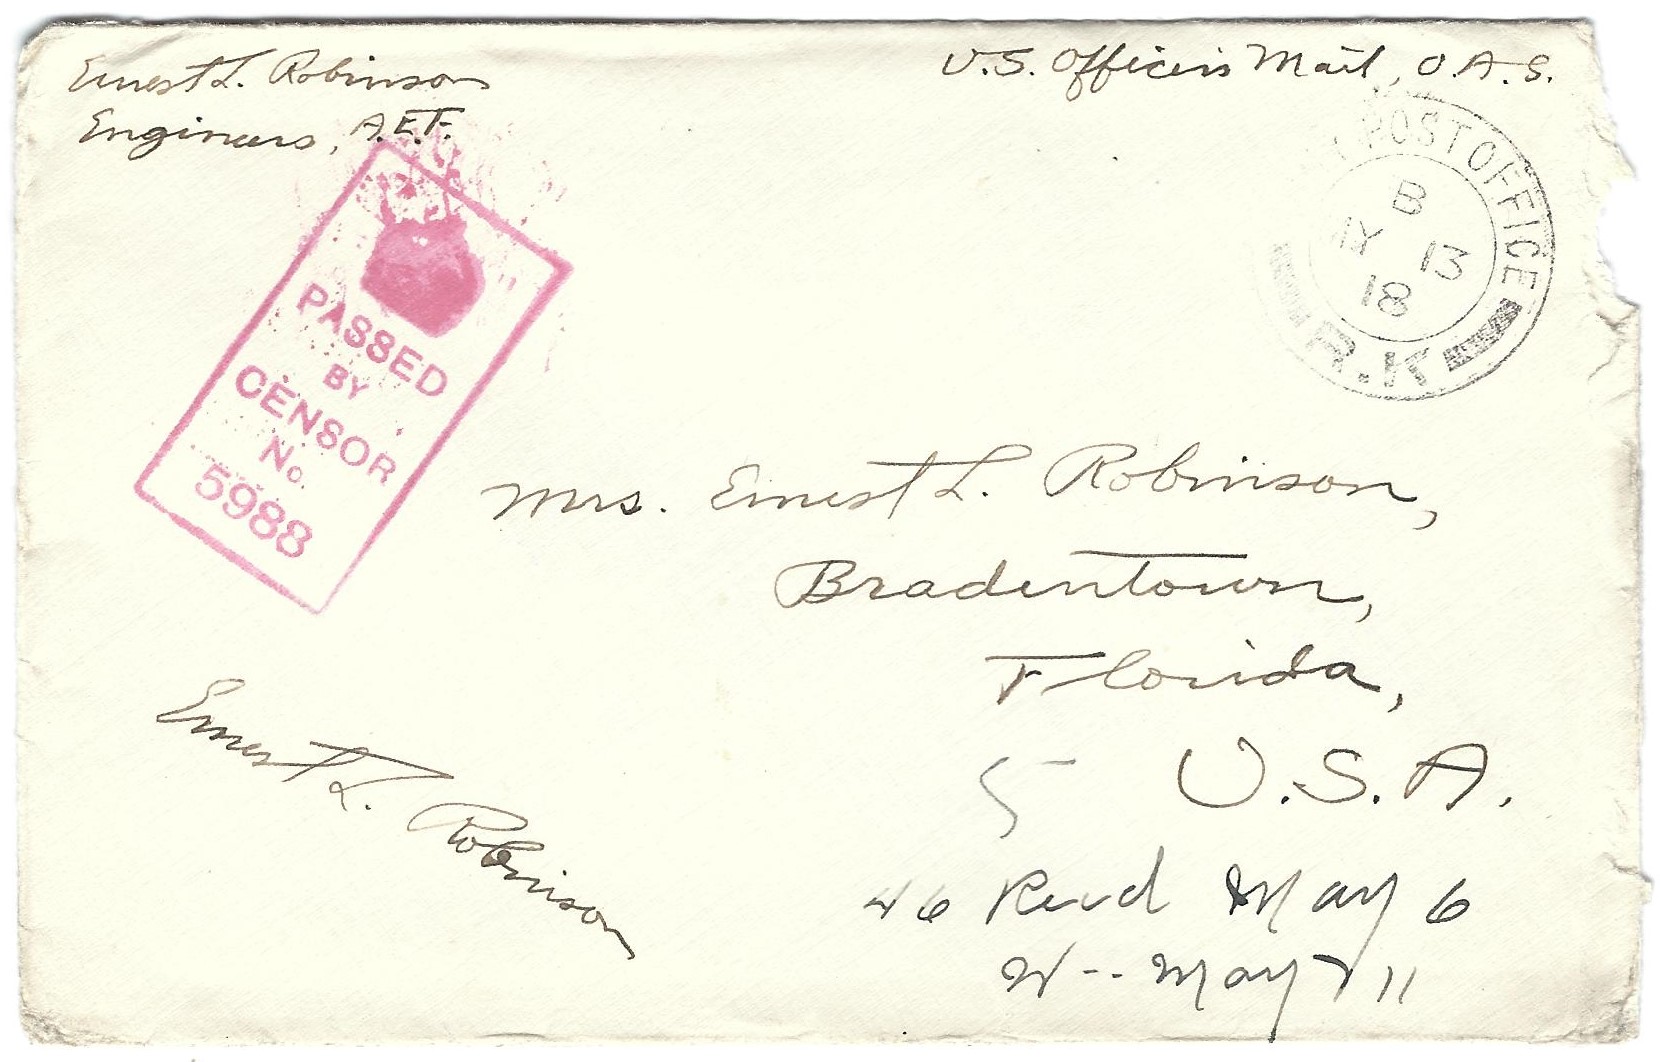 Ernest L. Robinson
Engineers, A.E.F.
U.S. Officer's Mail, O.A.S.
POST OFFICE
B
Y 13
18
R.K
PASSED
BY
CENSOR
No.
5988
Mrs. Ernest L. Robinson,
Bradentown,
Florida,
U.S.A.
5
Ernest L. Robinson
46 Recd May 6
W -- May 11